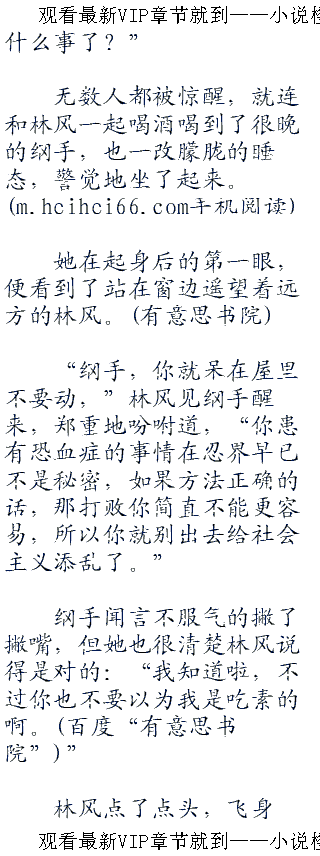 观看最新VIP章节就到——小说楼
什么事了？”
无数人都被惊醒，就连
和林风一起喝酒喝到了很晚
的纲手，也一改朦胧的睡
态，警觉地坐了起来。
(m.hcihci66.com手机阅读)
她在起身后的第一眼，
便看到了站在窗边遥望着远
方的林风。(有意思书院)
“纲手，你就呆在屋里
不要动，”林风见纲手醒
来，郑重地吩咐道，“你患
有恐血症的事情在忍界早已
不是秘密，如果方法正确的
话，那打败你简直不能更容
易，所以你就别出去给社会
主义添乱了。”
纲手闻言不服气的撇了
撇嘴，但她也很清楚林风说
得是对的：“我知道啦，不
过你也不要以为我是吃素的
啊。(百度“有意思书
院”)”
林风点了点头，飞身
观看最新VIP章节就到——小说楼